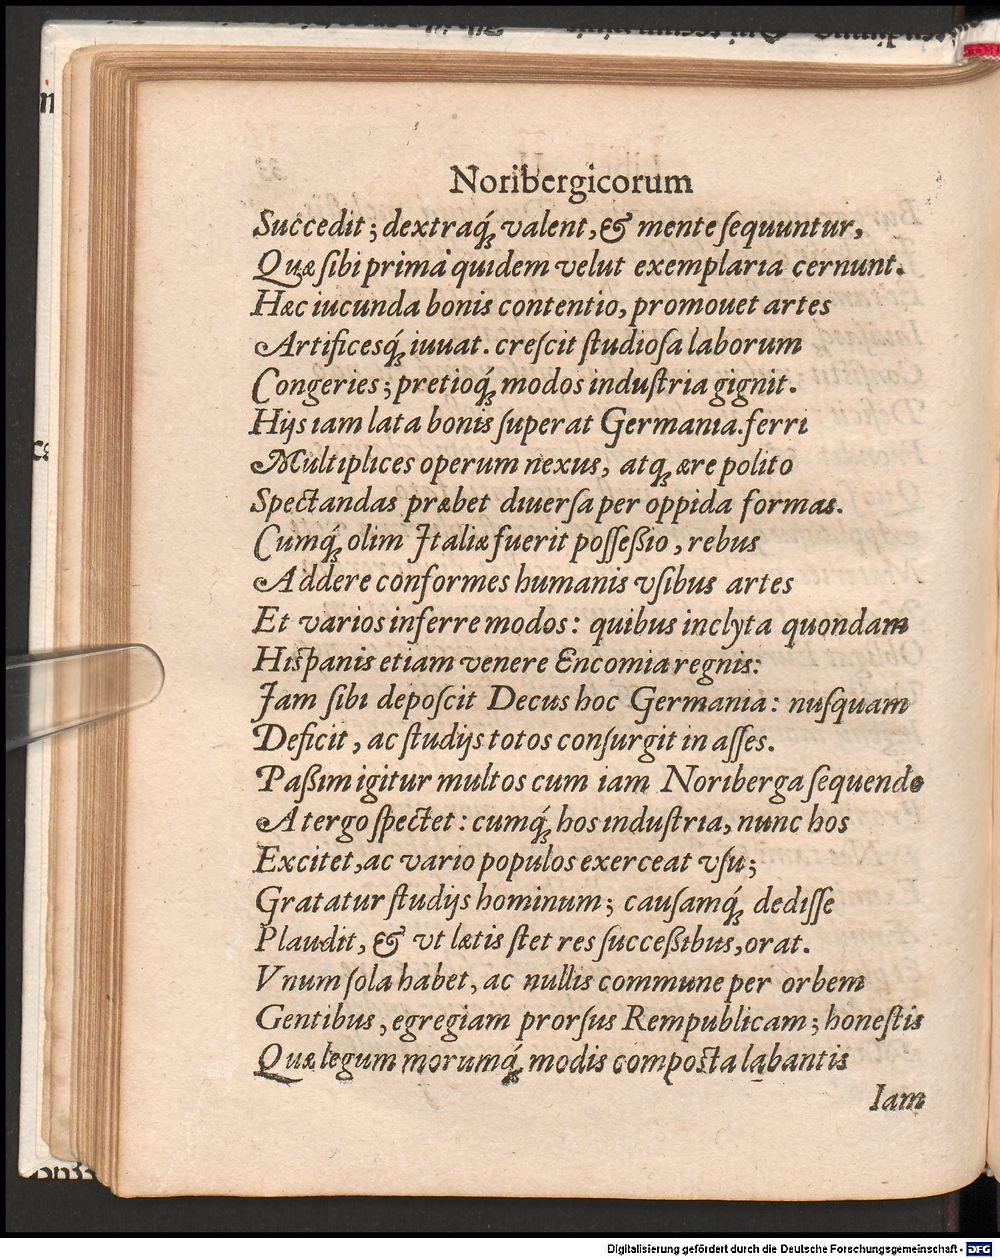 Noribergicorum
Succedit; dextraq́ꝫ valent, & mente ſequuntur,
Quæ ſibi prima quidem velut exemplaria cernunt.
Hæc iucunda bonis contentio, promouet artes
Artificesq́ꝫ iuuat. creſcit ſtudioſa laborum
Congeries; pretioq́ꝫ modos induſtria gignit.
Hijs iam lata bonis ſuperat Germania. ferri
Multiplices operum nexus, atqꝫ ære polito
Spectandas præbet diuerſa per oppida formas.
Cumq́ꝫ olim Italiæ fuerit poſſeßio, rebus
Addere conformes humanis vſibus artes
Et varios inferre modos: quibus inclyta quondam
Hiſpanis etiam venere Encomia regnis:
Iam ſibi depoſcit Decus hoc Germania: nuſquam
Deficit, ac ſtudijs totos conſurgit in aſſes.
Paßim igitur multos cum iam Noriberga ſequendo
A tergo ſpectet: cumq́ꝫ hos induſtria, nunc hos
Excitet, ac vario populos exerceat vſu;
Gratatur ſtudijs hominum; cauſamq́ꝫ dediſſe
Plaudit, & vt lætis ſtet res ſucceßibus, orat.
Vnum ſola habet, ac nullis commune per orbem
Gentibus, egregiam prorſus Rempublicam; honeſtis
Quæ legum morumq́ꝫ modis compoſta labantis
Iam
Digitalisierung gefördert durch die Deutsche Forschungsgemeinschaft - DFG